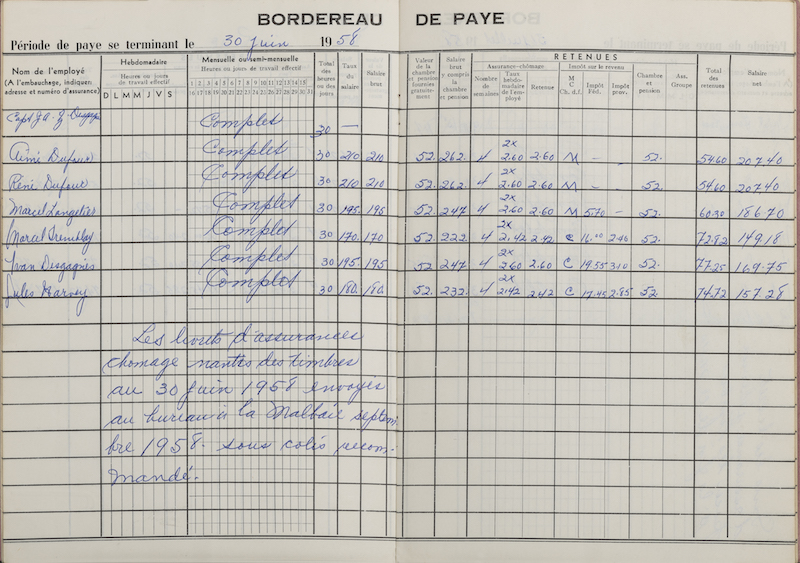 BORDEREAU DE PAYE
Période de paye se terminant le 30 juin 1958
RETENUES
Nom de l'employé
(A l'embauchage, indiquer adresse et numéro d'assurance)
Hebdomadaire
Heures ou jours de travail effectif
D L M M J V S
Mensuelle ou semi-mensuelle
Heures ou jours de travail effectif
1 2 3 4 5 6 7 8 9 10 11 12 13 14 15
16 17 18 19 20 21 22 23 24 25 26 27 28 29 30 31
Total des heures ou des jours
Taux du salaire
Salaire brut
Valeur de la chambre et pension fournies gratuitement
Salaire brut y compris la chambre et pension
Assurance-chômage
Nombre de semaines
Taux hebdomadaire de l'employé
Retenue
Impôt sur le revenu
M C Ch. d.f.
Impôt Féd.
Impôt prov.
Chambre et pension
Ass. Groupe
Total des retenues
Salaire net
Capt J. A. Z. Desgagnés Complet 30 —
Aimé Dufour Complet 30 210 210 52. 262. 4 2x 2.60 2.60 M - 52. 54.60 207.40
Réné Dufour Complet 30 210 210 52. 262. 4 2x 2.60 2.60 M - 52. 54.60 207.40
Marcel Langelier Complet 30 195. 195 52. 247 4 2x 2.60 2.60 M 5.70 - 52. 60.30 186.70
Marcel Tremblay Complet 30 170. 170 52. 222. 4 2x 2.42 2.42 C 16.00 2.40 52. 72.82 149.18
Yvan Desgagnés Complet 30 195. 195 52 247 4 2x 2.60 2.60 C 19.55 3.10 52. 77.25 169.75
Jules Harvey Complet 30 180. 180. 52. 232. 4 2x 2.42 2.42 C 17.45 2.85 52. 74.72 157.28
Les livrets d'assurances
chomage nantis des timbres
au 30 juin 1958 envoyés
au bureau à la Malbaie septem-
bre 1958. sous colis recom-
mandé.